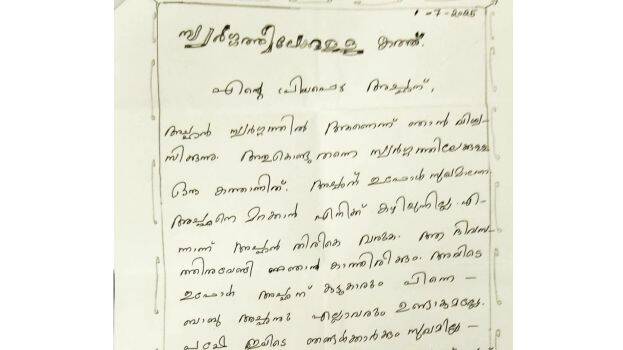 1-7-2025
സ്വർഗ്ഗത്തിലേക്കുള്ള കത്ത്.
എന്റെ പ്രിയപ്പെട്ട അപ്പന്,
അപ്പൻ സ്വർഗ്ഗത്തിൽ ആണെന്ന് ഞാൻ വിശ്വ-
സിക്കുന്നു. അതുകൊണ്ടുതന്നെ സ്വർഗ്ഗത്തിലേക്കുള്ള
ഒരു കത്താണിത്. അപ്പന് ഇപ്പോൾ സുഖമാണോ
അപ്പനെ മറക്കാൻ എനിക്ക് കഴിയുന്നില്ല. എ-
ന്നാണ് അപ്പൻ തിരികെ വരുക. ആ ദിവസ-
ത്തിനുവേണ്ടി ഞാൻ കാത്തിരിക്കും. അവിടെ
ഇപ്പോൾ അപ്പന് കൂട്ടുകാരും പിന്നെ -
ബാബു അപ്പനും എല്ലാവരും ഉണ്ടാകുമല്ലോ.
പക്ഷേ ഇവിടെ ഞങ്ങൾക്കാർക്കും സുഖമില്ല -